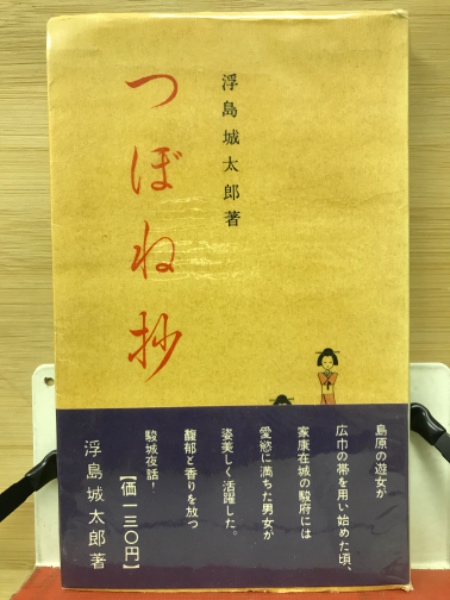 浮島城太郎著
つぼね抄
島原の遊女が
広巾の帯を用い始めた頃、
家康在城の駿府には
愛慾に満ちた男女が
姿美しく活躍した。
馥郁と香りを放つ
駿城夜話!
【価一三〇円】
浮島城太郎著